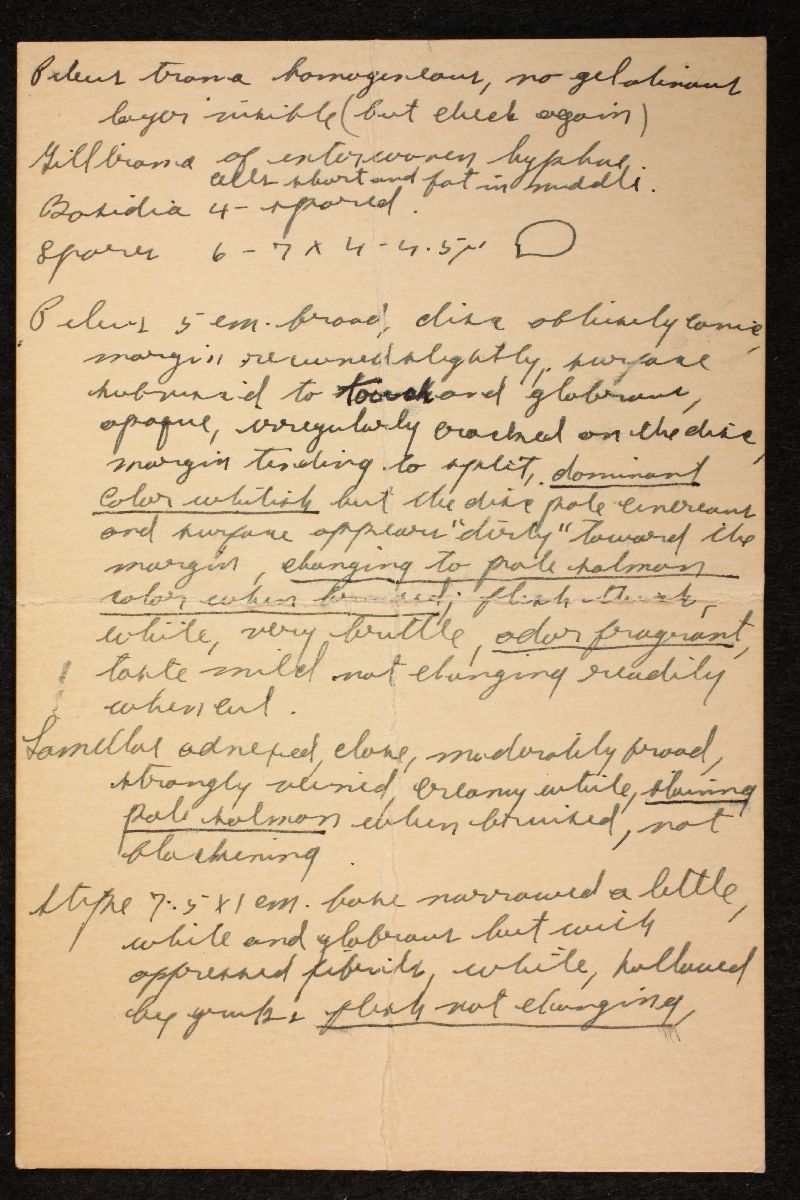 Pileus trama homogeneous, no gelatinous
layer visible (but check again)
Gill trama of interwoven hyphae.
cells short and fat in middle.
Basidia 4-spored.
Spores 6-7 x 4-4.5µ
Pileus 5 cm. broad, disc obtusely conic,
margin recurved slightly, surface
subviscid to touch and glabrous,
opaque, irregularly cracked on the disc,
margin tending to split, dominant
color whitish but the disc pale cinereous
and surface appears "dirty" toward the
margin, changing to pale salmon
color when bruised; flesh thick,
white, very brittle, odor fragrant,
taste mild not changing readily
when cut.
Lamellae adnexed, close, moderately broad,
strongly veined, creamy white, staining
pale salmon when bruised, not
blackening.
Stipe 7.5 x 1 cm. base narrowed a little,
white and glabrous but with
appressed fibrils, white, hollowed
by grubs, flesh not changing,